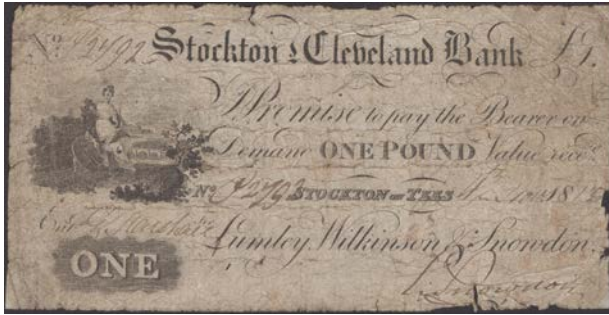 No. Stockton & Cleveland Bank £1.
I Promise to pay the Bearer on
Demand ONE POUND Value recd.
No. STOCKTON-on-TEES
Lumley, Wilkinson & Snowdon.
ONE
Snowdon